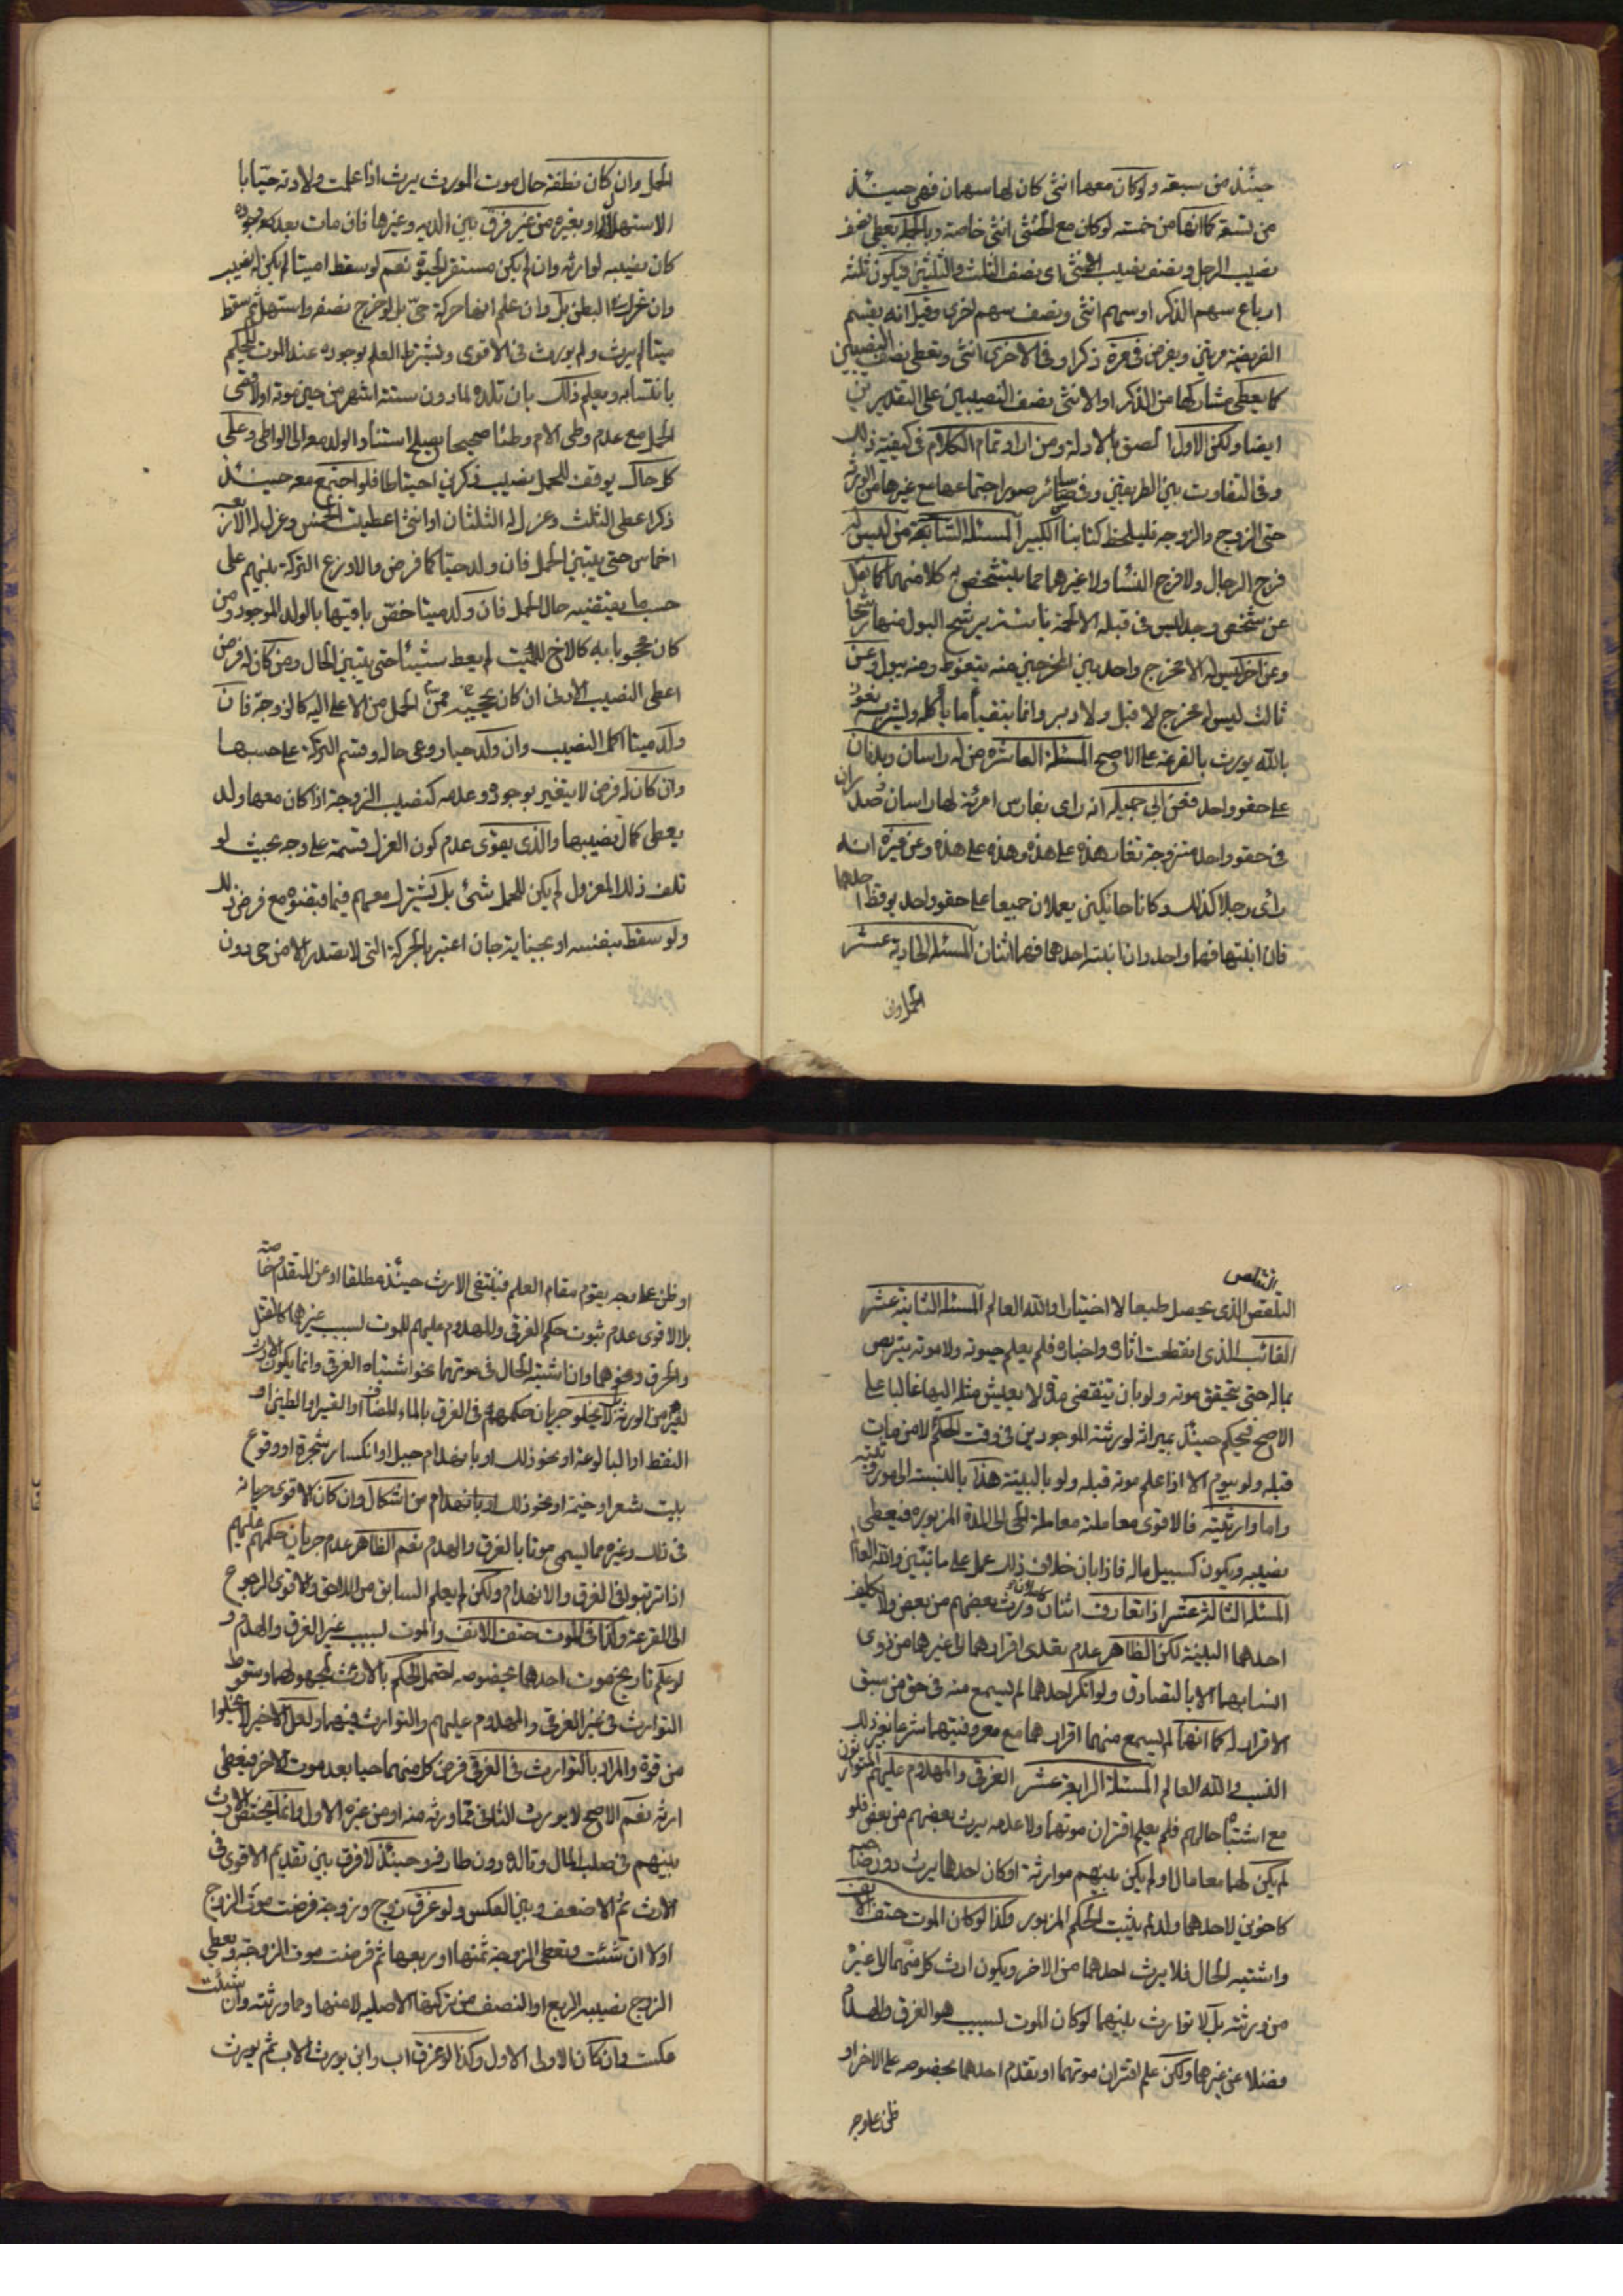 حينئذ من سبعة ولو كان معها انثى كان لها سهمان فهى حينئذ
من تسعة كما انها من خمسة لو كان مع الخنثى انثى خاصة وبالجملة يعطى نصف
نصيب الرجل ونصف نصيب الانثى اى نصف الثلث والثلثين فيكون ثلثة
ارباع سهم الذكر او سهم انثى ونصف سهم اخرى وقيل انه يقسم
الفريضة مرتين ويفرض فى مرة ذكرا وفى الاخرى انثى وتعطى نصف النصيبين
كما يعطى مشاركها من الذكر او الانثى نصف النصيبين على التقديرين
ايضا ولكن الاول الصق بالادلة ومن اراد تمام الكلام فى كيفية ذلك
وفى التفاوت بين الطريقين وفى سائر صور اجتماعها مع غيرها من الورثة
حتى الزوج والزوجة فليلحظ كتابنا الكبير المسئلة التاسعة من ليس له
فرج الرجال ولا فرج النساء ولا غيرهما مما يتشخص به كلا منهما كما نقل
عن شخص وجد ليس فى قبله الا لحمة نابتة يرشح البول منها رشحا
وعن اخر ليس له الا مخرج واحد بين المخرجين منه يتغوط ومنه يبول وعن
ثالث ليس له مخرج لا قبل ولا دبر وانما يتقيأ ما يأكله ويشربه نعوذ
بالله يورث بالقرعة على الاصح المسئلة العاشرة من له راسان وبدنان
على حقو واحد فعن ابى جميلة انه راى بفارس امرئة لها راسان وصدران
فى حقو واحد متزوجة تغار هذه على هذه وهذه على هذه وعن غيره انه
رأى رجلا كذلك وكانا حائكين يعملان جميعا على حقو واحد يوقظ احدهما
فان انتبها فهما واحد وان انتبه احدهما فهما اثنان المسئلة الحادية عشر
الحمل وان
الحمل وان كان نطفة حال موت المورث يرث اذا علمت ولادته حيّا با
الاستهلال او بغيره من غير فرق بين الدية وغيرها فان مات بعد وجوده
كان نصيبه لوارثه وان لم يكن مستقر الحيوة نعم لو سقط ميتا لم يكن له نصيب
وان تحرك فى البطن بل وان علم انها حركة حىّ بل لو خرج نصفه واستهل ثم سقط
ميتا لم يرث ولم يورث فى الاقوى ويشترط العلم بوجوده عند الموت ليحكم
بانتسابه ويعلم ذلك بان تلده لما دون ستة اشهر من حين موته او لاقصى
الحمل مع عدم وطى الام وطئا صحيحا يصلح استناد الولد معه الى الواطى وعلى
كل حال يوقف للحمل نصيب ذكرين احتياطا فلو اجتمع معه حينئذ
ذكر اعطى الثلث وعزل له الثلثان او انثى اعطيت الخمس وعزل له الاربعة
اخماس حتى يتبين الحمل فان ولد حيا كما فرض والا وزع التركة بينهم على
حسب ما يقتضيه حال الحمل فان ولد ميتا خصّ باقيها بالولد الموجود ومن
كان محجوبا به كالاخ للميت لم يعط شيئا حتى يتبين الحال ومن كان له فرض
اعطى النصيب الادنى ان كان ممن يحجبه الحمل من الاعلى اليه كالزوجة فان
ولد ميتا اكمل النصيب وان ولد حيا روعى حاله وقسم التركة على حسبها
وان كان له فرض لا يتغير بوجوده وعدمه كنصيب الزوجة اذا كان معها ولد
يعطى كمال نصيبها والذى يقوى عدم كون العزل قسمة على وجه بحيث لو
تلف ذلك المعزول لم يكن للحمل شئ بل يشترك معهم فيما قبضوه مع فرض ذلك
ولو سقط بنفسه او بجناية جان اعتبر بالحركة التى لا تصدر الا من حى دون
التقلص
التقلص الذى يحصل طبعا لا اختيارا والله العالم المسئلة الثانية عشر
الغائب الذى انقطعت اثاره واخباره فلم يعلم حيوته ولا موته يتربص
بماله حتى يتحقق موته ولو بان تنقضى مدة لا يعيش مثله اليها غالبا على
الاصح فيحكم حينئذ بميراثه لورثته الموجودين فى وقت الحكم لا من مات
قبله ولو بيوم الا اذا علم موته قبله ولو بالبينة هذا بالنسبة الى موروثيته
واما وارثيته فالاقوى معاملته معاملة الحى الى المدة المزبورة فيعطى
نصيبه ويكون كسبيل ماله فاذا بان خلاف ذلك عمل على ما تبين والله العالم
المسئلة الثالثة عشر اذا تعارف اثنان ورث بعضهم من بعض ولا يكلف
احدهما البينة لكن الظاهر عدم تعدى اقرارهما الى غيرهما من ذوى
انسابهما الا بالتصادق ولو انكر احدهما لم يسمع منه فى حق من سبق
الاقرار له كما انهما لم يسمع منهما اقرارهما مع معروفيتهما شرعا بغير ذلك
النسب والله العالم المسئلة الرابعة عشر الغرقى والمهدوم عليهم المتوارثون
مع اشتباه حالهم فلم يعلم اقتران موتهما ولا عدمه يرث بعضهم من بعض فلو
لم يكن لهما معا مال او لم يكن بينهم موارثة او كان احدهما يرث دون صاحبه
كاخوين لاحدهما ولد لم يثبت الحكم المزبور وكذا لو كان الموت حتف الانف
واشتبه الحال فلا يرث احدهما من الاخر ويكون ارث كل منهما لا غيره
من ورثته بل لا توارث بينهما لو كان الموت لسبب هو الغرق والهدم
فضلا عن غيرها ولكن علم اقتران موتهما او تقدم احدهما بخصوصه على الاخر او
ظن على وجه
او ظن على وجه يقوم مقام العلم فينتفى الارث حينئذ مطلقا او عن المتقدم خاصة
بل الاقوى عدم ثبوت حكم الغرقى والمهدوم عليهم للموت لسبب غيرهما كالقتل
والحرق ونحوهما وان اشتبه الحال فى موتهما نحو اشتباه الغرقى وانما يكون الارث
لغيرهم من الورثة ولا يخلو جريان حكمهم فى الغرق بالماء المضاف او القير او الطين او
النفط او البالوعة او نحو ذلك او بانهدام جبل او انكسار شجرة او وقوع
بيت شعر او خيمة او نحو ذلك او بانهدام من اشكال وان كان الاقوى جريانه
فى ذلك وغيره مما يسمى موتا بالغرق والهدم نعم الظاهر عدم جريان حكمهم عليهم
اذا ترتبوا فى الغرق والانهدام ولكن لم يعلم السابق من اللاحق والاقوى الرجوع
الى القرعة وكذا فى الموت حتف الانف والموت لسبب غير الغرق والهدم و
لو علم تاريخ موت احدهما بخصوصه احتمل الحكم بالارث لمجهولهما وسقوط
التوارث فى غير الغرقى والمهدوم عليهم والتوارث فيهما ولعل الاخير لا يخلوا
من قوة والمراد بالتوارث فى الغرقى فرض كل منهما حيا بعد موت الاخر فيعطى
ارثه نعم الاصح لا يورث الثانى مما ورثه منه او من غيره الاول وانما يختص الارث
بينهم فى صلب المال وتالده دون طارفه وحينئذ لا فرق بين تقديم الاقوى فى
الارث ثم الاضعف وبين العكس ولو غرق زوج وزوجة فرضت موت الزوج
اولا ان شئت وتعطى الزوجة ثمنها او ربعها ثم فرضت موت الزوجة وتعطى
الزوج نصيبه الربع او النصف من تركتها الاصلية لا منها ومما ورثته وان شئت
عكست وان كان الاولى الاول وكذا لو غرق اب وابن يورث الاب ثم يورث